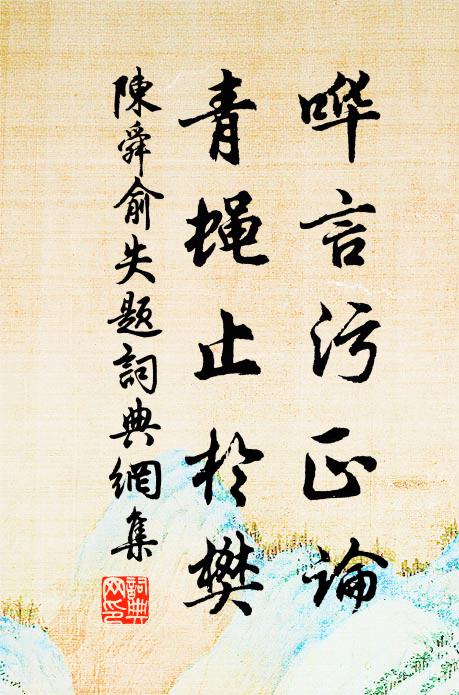 哗言污正论
青蝇止於樊
陳舜俞失题詞典網集
詞典网印